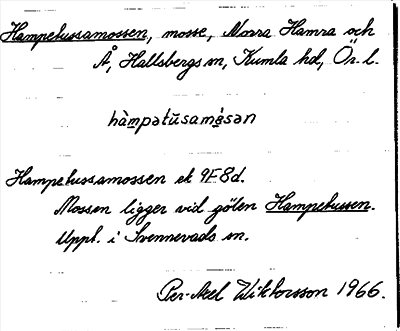 Hampetussamossen, mosse, Norra Hamra och
Å, Hallsbergs sn, Kumla hd, Ör. l.
hàmpətūsamåsən
Hampetussamossen ek 9F8d.
Mossen ligger vid gölen Hampetussen.
Uppt. i Svennevads sn.
Per-Axel Wiktorsson 1966.